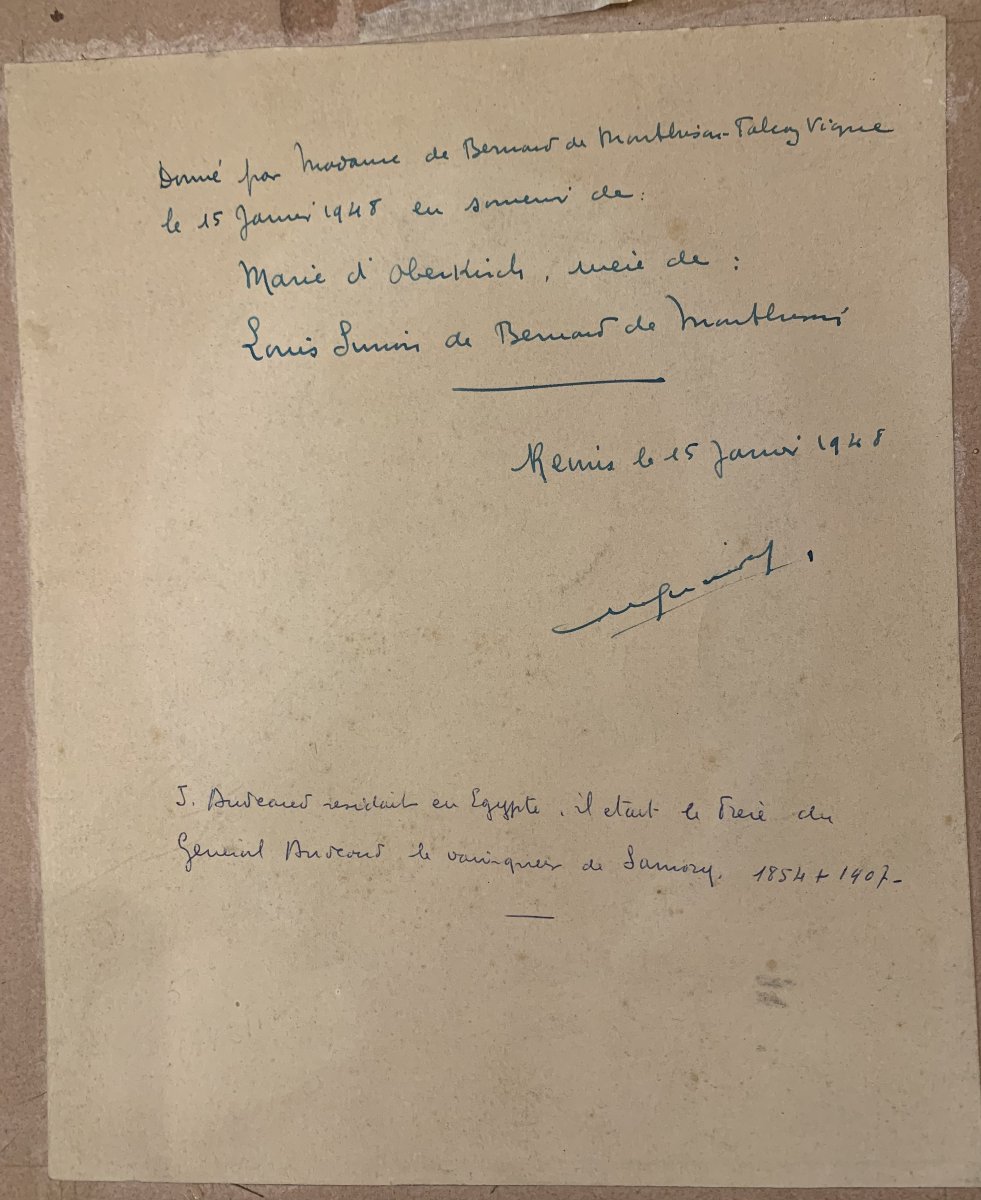 Donné par Madame de Bernard de Montbrison-Talcoz Vigne
le 15 Janvier 1948 en souvenir de :
Marie d'Oberkirch, mère de :
Louis Simon de Bernard de Montbrison
Remis le 15 Janvier 1948
J. Audeoud residait en Egypte, il etait le Frère du
General Audeoud le vainqueur de Samory. 1854 + 1907-